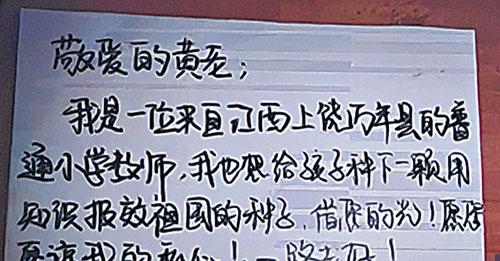 敬爱的黄老;
我是一位来自江西上饶万年县的普
通小学教师,我也想给孩子种下一颗用
知识报效祖国的种子,借您的光!愿您
原谅我的私心!一路走好!